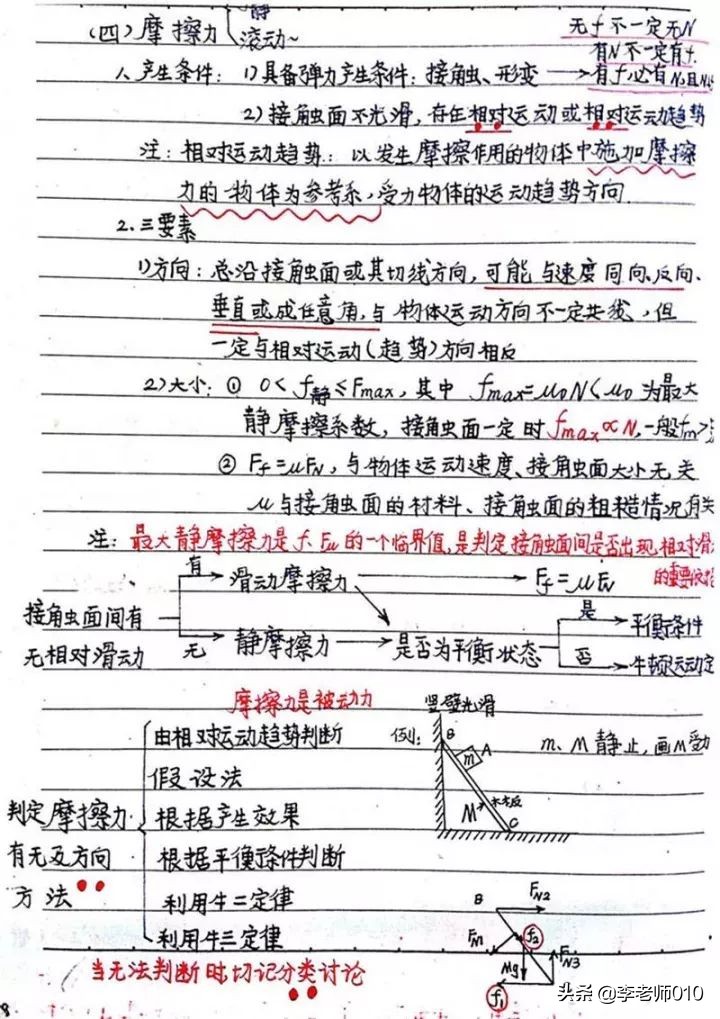 静
(四)摩擦力
滚动~
无f不一定无N
有N不一定有f.
1、产生条件: 1)具备弹力产生条件:接触、形变
有f,必有N,且N⊥f
2)接触面不光滑,存在相对运动或相对运动趋势
注:相对运动趋势:以发生摩擦作用的物体中施加摩擦
力的物体为参考系,受力物体的运动趋势方向
2.三要素
1)方向:总沿接触面或其切线方向,可能与速度同向、反向、
垂直或成任意角,与物体运动方向不一定共线,但
一定与相对运动(趋势)方向相反
2)大小: ① 0<f静≤Fmax,其中 fmax=μ0N(μ0为最大
静摩擦系数,接触面一定时fmax∝N,一般fm>
② Ff=μFN,与物体运动速度、接触面大小无关
μ与接触面的材料、接触面的粗糙情况有关
注:最大静摩擦力是f 的一个临界值,是判定接触面间是否出现相对滑
的重要依据
有 滑动摩擦力 Ff=μFN
接触面间有
无相对滑动
无 静摩擦力 是否为平衡状态
是 平衡条件
否 牛顿运动定
摩擦力是被动力
竖壁光滑
由相对运动趋势判断
例: B A m
m、M静止,画M受力
假设法
判定摩擦力
有无及方向
方法
根据产生效果
M 木板 C
根据平衡条件判断
利用牛二定律
B FN2
利用牛三定律
FN1 f2 FN3
Mg
当无法判断时切记分类讨论
f1
头条@李老师010
8